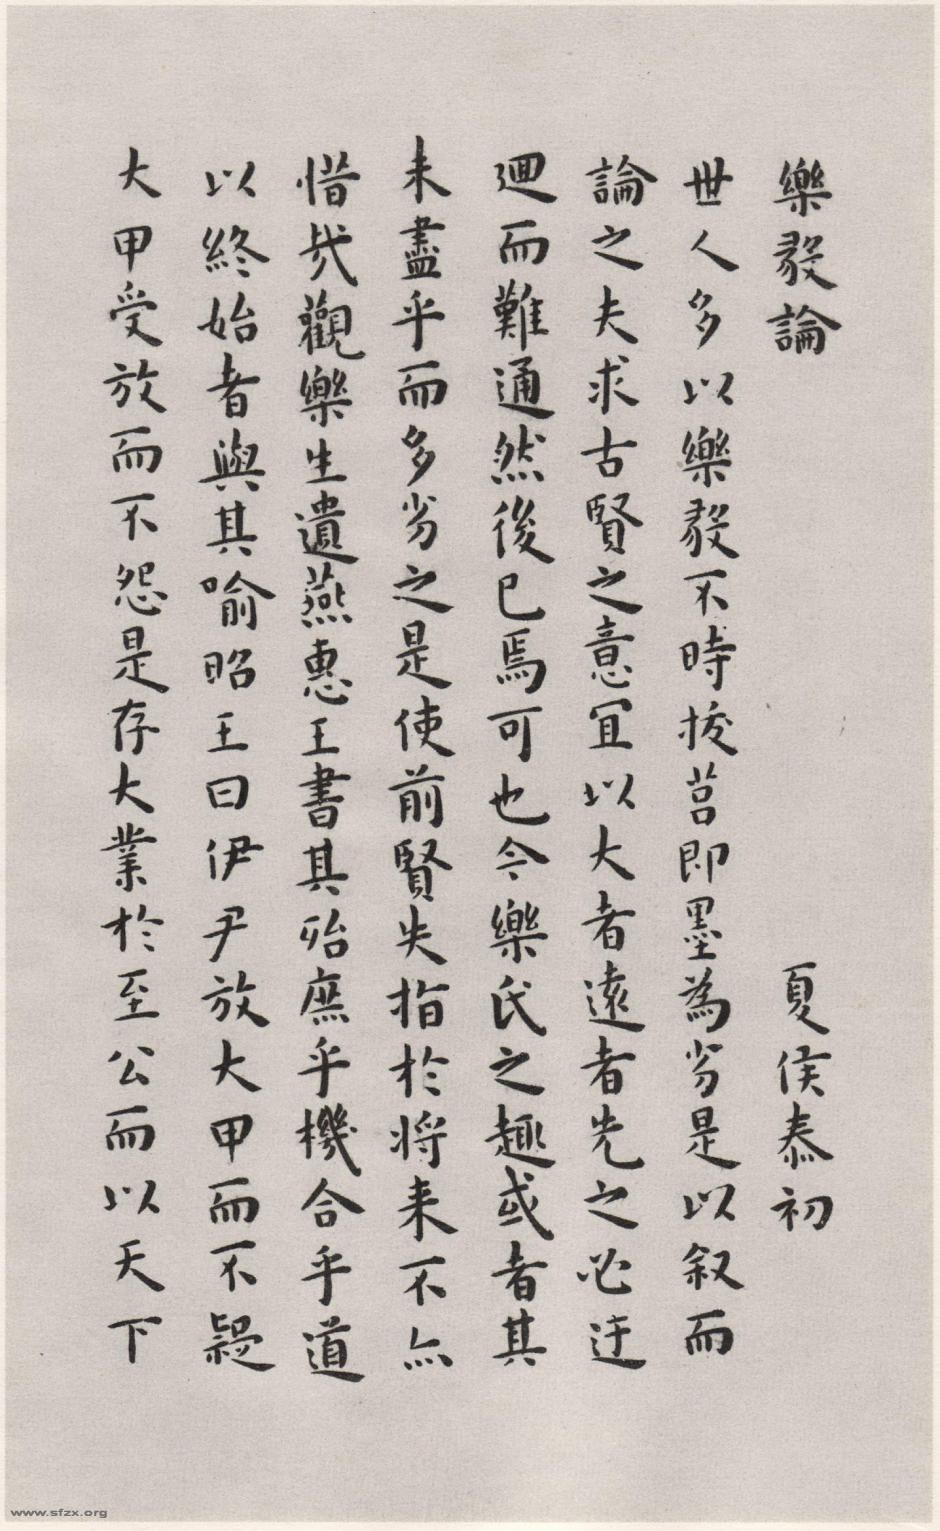 樂毅論 夏侯泰初
世人多以樂毅不時拔莒即墨為劣是以叙而
論之夫求古賢之意宜以大者遠者先之必迂
迴而難通然後已焉可也今樂氏之趣或者其
未盡乎而多劣之是使前賢失指於將来不亦
惜哉觀樂生遺燕惠王書其殆庶乎機合乎道
以終始者與其喻昭王曰伊尹放大甲而不疑
大甲受放而不怨是存大業於至公而以天下
www.sfzx.org